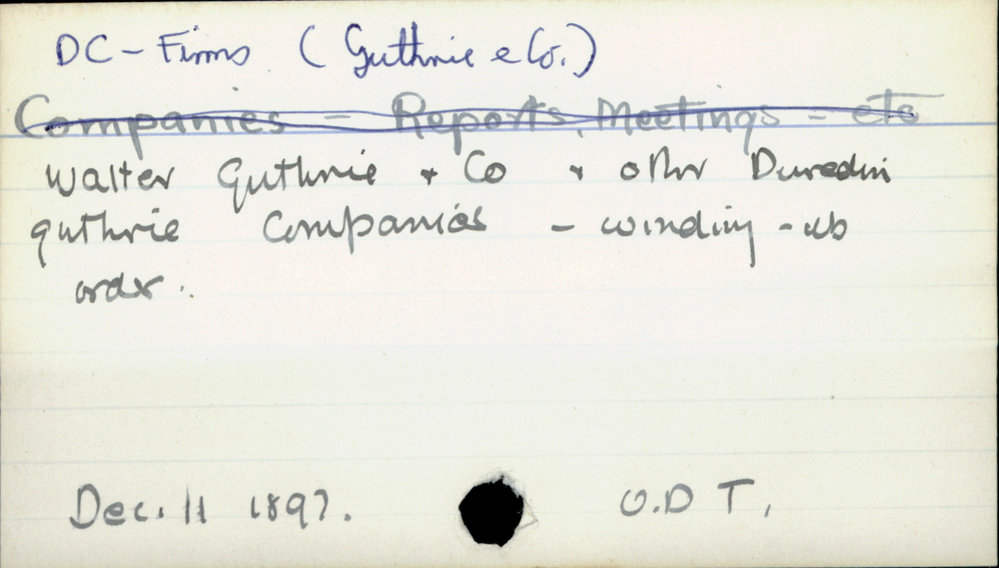 DC - Firms (Guthrie & Co.)
Companies - Reports, Meetings - etc
Walter Guthrie + Co + other Dunedin
guthrie Companies - winding-up
order.
Dec. 11 1897. O.D T.